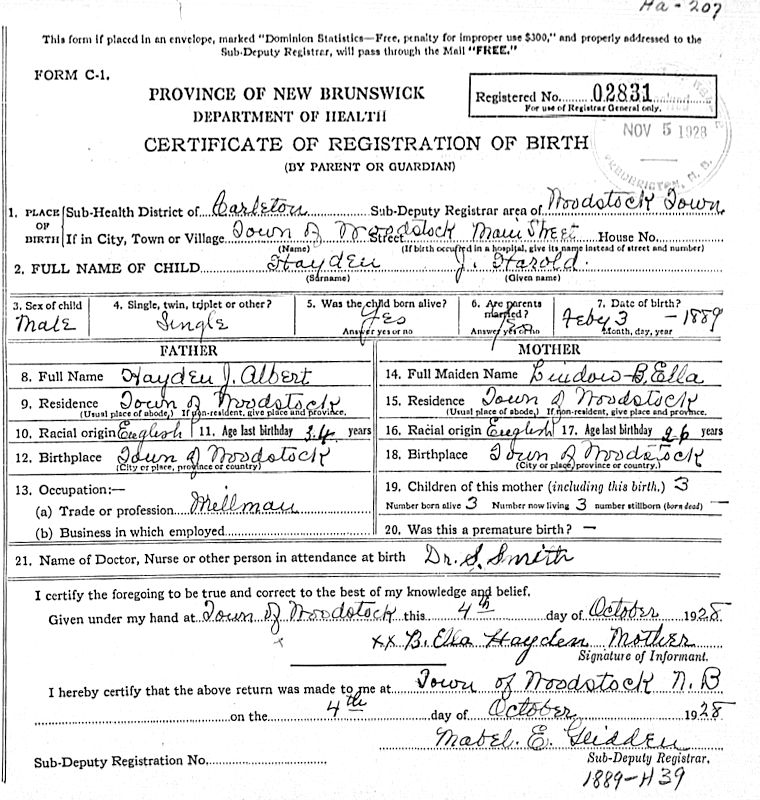 Ha - 207
This form if placed in an envelope, marked "Dominion Statistics—Free, penalty for improper use $300," and properly addressed to the
Sub-Deputy Registrar, will pass through the Mail "FREE."
FORM C-1.
PROVINCE OF NEW BRUNSWICK
DEPARTMENT OF HEALTH
Registered No. 02831
For use of Registrar General only.
NOV 5 1928
CERTIFICATE OF REGISTRATION OF BIRTH
(BY PARENT OR GUARDIAN)
1. PLACE OF BIRTH
Sub-Health District of Carleton Sub-Deputy Registrar area of Woodstock Town
If in City, Town or Village Town of Woodstock Street Main Street House No.
(Name) (If birth occurred in a hospital, give its name instead of street and number)
2. FULL NAME OF CHILD Hayden J. Harold
(Surname) (Given name)
3. Sex of child 4. Single, twin, triplet or other? 5. Was the child born alive? 6. Are parents married? 7. Date of birth?
Male Single Yes Yes Feby 3 - 1889
Answer yes or no Answer yes or no Month, day, year
FATHER MOTHER
8. Full Name Hayden J. Albert 14. Full Maiden Name B. Ella
9. Residence Town of Woodstock 15. Residence Town of Woodstock
(Usual place of abode,) If non-resident, give place and province. (Usual place of abode,) If non-resident, give place and province.
10. Racial origin English 11. Age last birthday 34 years 16. Racial origin English 17. Age last birthday 26 years
12. Birthplace Town of Woodstock 18. Birthplace Town of Woodstock
(City or place, province or country) (City or place, province or country.)
13. Occupation:— 19. Children of this mother (including this birth.) 3
(a) Trade or profession Millman Number born alive 3 Number now living 3 number stillborn (born dead) —
(b) Business in which employed 20. Was this a premature birth? —
21. Name of Doctor, Nurse or other person in attendance at birth Dr. S. Smith
I certify the foregoing to be true and correct to the best of my knowledge and belief.
Given under my hand at Town of Woodstock this 4th day of October 1928
x xx B. Ella Hayden Mother
Signature of Informant.
I hereby certify that the above return was made to me at Town of Woodstock N. B
on the 4th day of October 1928
Mabel. E. Glidden
Sub-Deputy Registration No. Sub-Deputy Registrar.
1889-H39